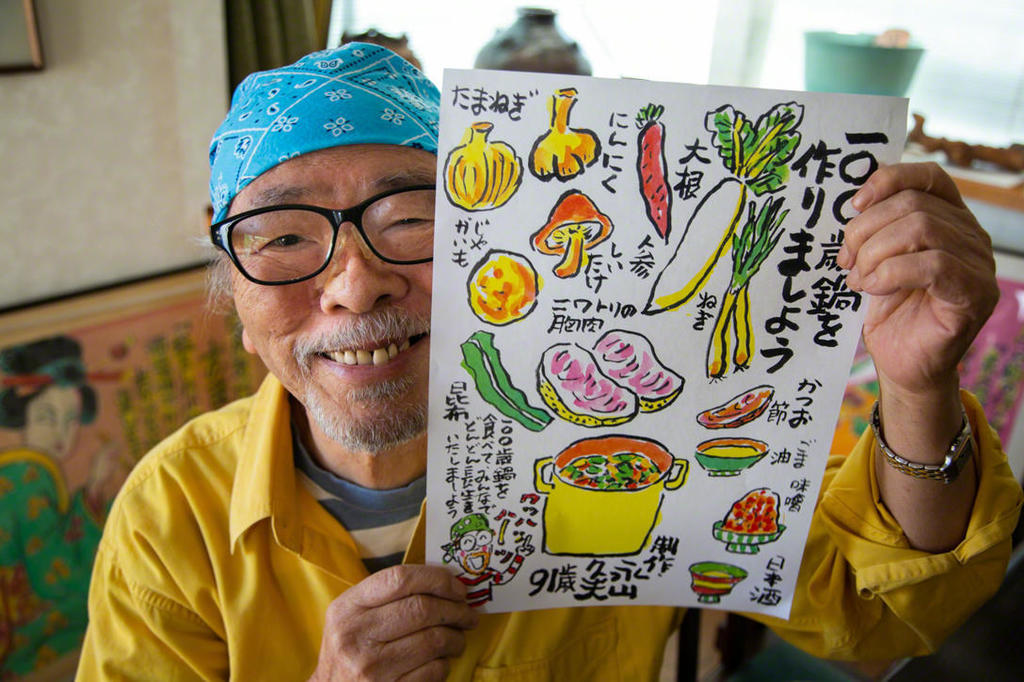 一〇〇歳鍋を
作りましょう
大根
ねぎ
人参
にんにく
たまねぎ
しい
たけ
じゃ
がいも
ニワトリの
胸肉
昆布
かつお
節
ごま
油
味噌
日本酒
一〇〇歳鍋を
食べて、みんなで
どんどん長生き
いたしましょう
制作
91歳